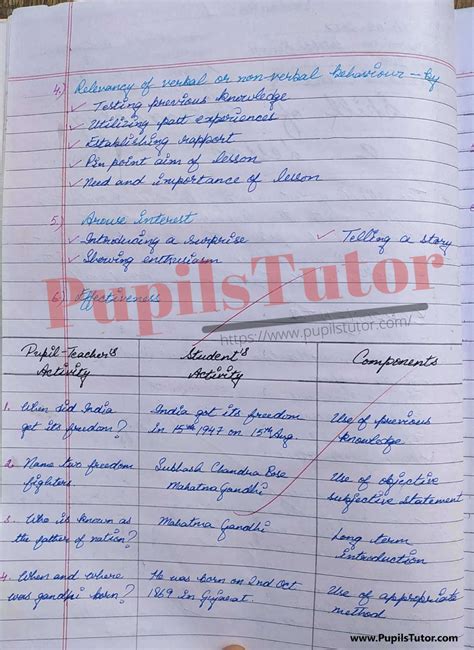 4.) Relevancy of verbal or non-verbal behaviour - by
✓ Testing previous knowledge
✓ Utilizing past experiences
✓ Establishing rapport
✓ Pin point aim of lesson
✓ Need and importance of lesson
5.) Arouse interest
✓ Introducing a surprise ✓ Telling a story
✓ Showing enthusiasm
PupilsTutor
6.) Effectiveness
https://www.pupilstutor.com/
Pupil-Teacher's Student's Components
Activity Activity
1. When did India India got its freedom Use of previous
get its freedom? In 15th 1947 on 15th Aug. knowledge
2. Name two freedom Subhash Chandra Bose Use of objective
fighters. Mahatma Gandhi subjective statement
3. Who is known as Mahatma Gandhi Long term
the father of nation? introduction
4. When and where He was born on 2nd Oct Use of appropriate
was gandhi born? 1869 in Gujarat. method
www.PupilsTutor.Com